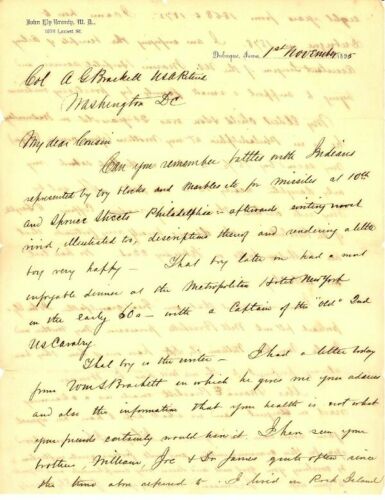 John Ely Briardy, M. D.,
1070 Locust St.
Dubuque, Iowa, 1st November 1895
Col A G Brackett USA Retired
Washington DC
My dear Cousin
Can you remember battles with Indians
represented by toy blocks and marbles etc for missiles at 10th
and Spruce Streets Philadelphia - afterward, writing most
vivid illustrated too, descriptions thereof and rendering a little
boy very happy - That boy later in had a most
enjoyable dinner at the Metropolitan Hotel New York
in the early 60s - with a Captain of the "old" 2nd
US Cavalry.
That boy is the writer - I had a letter today
from Wm S Brackett in which he gives me your address
and also the information that your health is not what
your friends certainly would have it. I have seen your
brothers, William, Joe & Dr James quite often since
the time above referred to - I lived in Rock Island